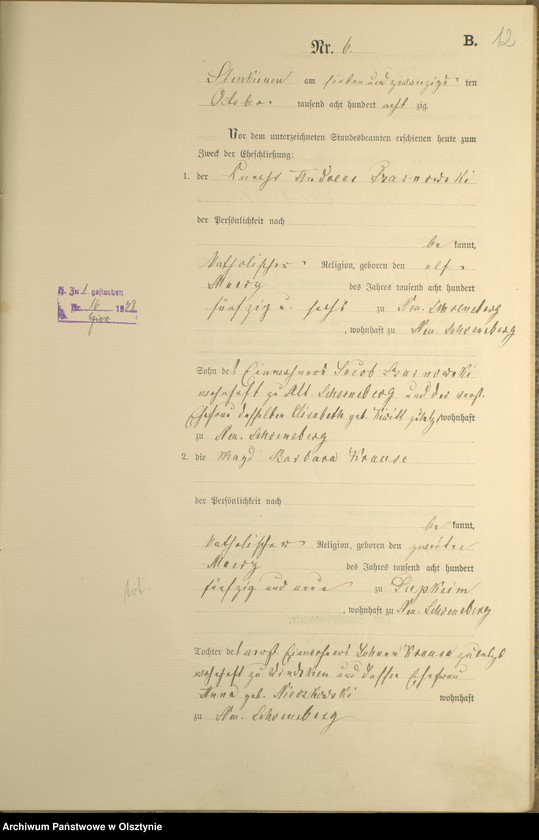 B. 12
Nr. 6.
am sieben und zwanzigsten
October tausend acht hundert acht zig.
Vor dem unterzeichneten Standesbeamten erschienen heute zum
Zweck der Eheschließung:
1. der Knecht Andreas Czarnowski
der Persönlichkeit nach
be kannt,
katholischer Religion, geboren den elf
Maerz des Jahres tausend acht hundert
fünfzig u. sechs zu Neu Schoeneberg
, wohnhaft zu Neu Schoeneberg
Sohn des Einwohners Jacob Czarnowski
wohnhaft zu Alt Schoeneberg und der verst.
Ehefrau desselben Elisabeth geb. zuletzt wohnhaft
zu Neu Schoeneberg
2. die Magd Barbara Krause
der Persönlichkeit nach
be kannt,
katholischer Religion, geboren den zweiten
Maerz des Jahres tausend acht hundert
fünfzig und neun zu
, wohnhaft zu Neu Schoeneberg
Tochter des verst. Einwohners Johann Krause zuletzt
wohnhaft zu und dessen Ehefrau
Anna geb. Nieczkowski wohnhaft
zu Neu Schoeneberg
H. Zu 1 gestorben
Nr. 16
tot
Archiwum Państwowe w Olsztynie